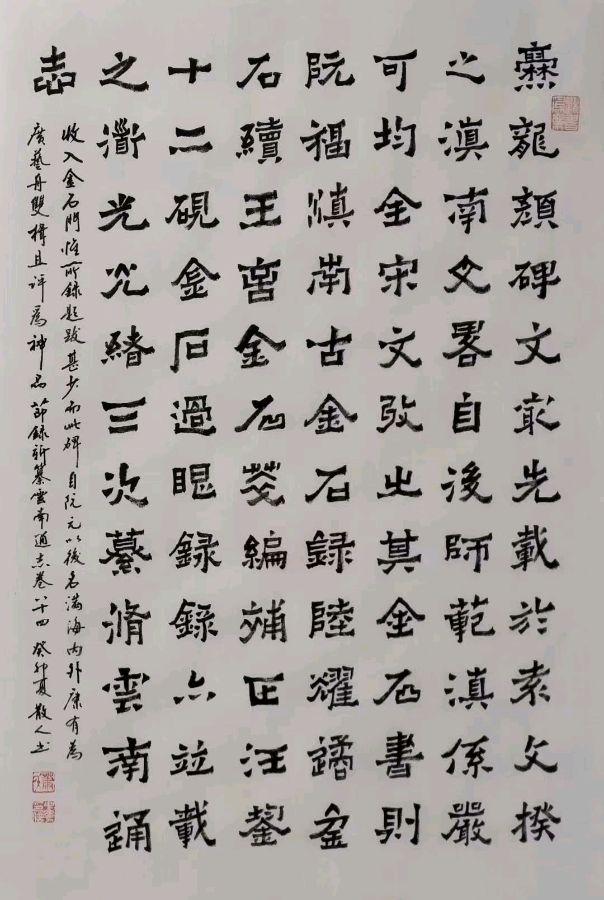 爨龍顏碑文最先載於袁文揆
之滇南文畧自後師範滇係嚴
可均全宋文攷之其金石書則
阮福滇南古金石錄陸耀遹金
石續王言金石萃編補正汪鋆
十二硯金石過眼録錄六並載
之衜光光緒三次纂脩雲南通
志
收入金石門惟所録題跋甚少而此碑自阮元以後名滿海内外康有為
廣藝舟雙楫且評為神品節録新纂雲南通志卷八十四癸卯夏散人书